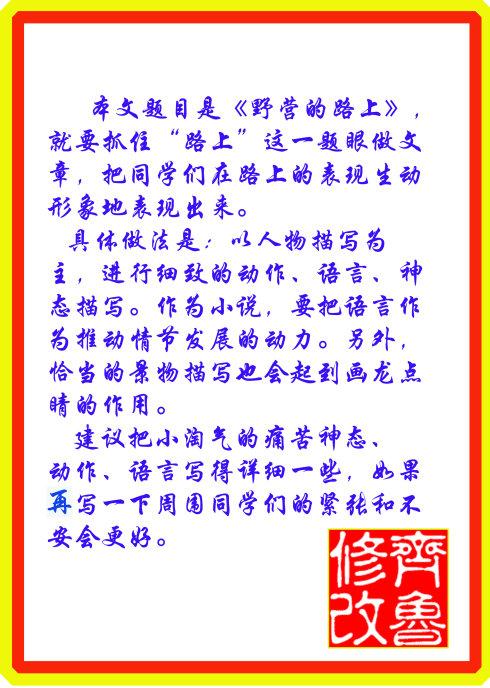 本文题目是《野营的路上》，
就要抓住“路上”这一题眼做文
章，把同学们在路上的表现生动
形象地表现出来。
具体做法是：以人物描写为
主，进行细致的动作、语言、神
态描写。作为小说，要把语言作
为推动情节发展的动力。另外，
恰当的景物描写也会起到画龙点
睛的作用。
建议把小淘气的痛苦神态、
动作、语言写得详细一些，如果
再写一下周围同学们的紧张和不
安会更好。
齊魯
修改